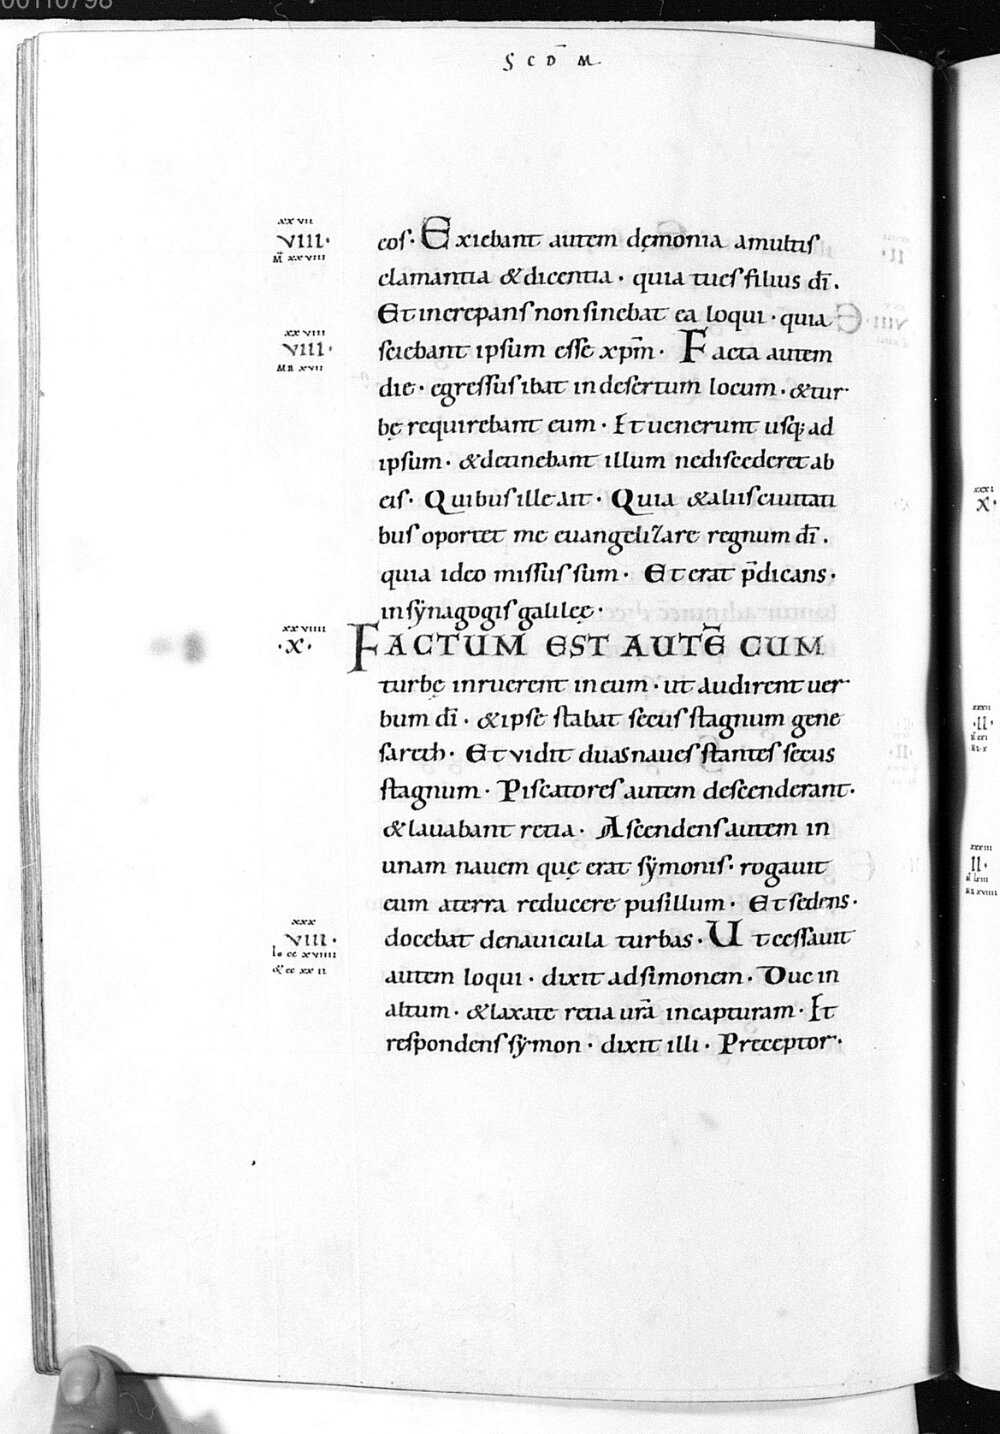 00110798
SCD̄M
xxvii
VIII·
M̄ xxviii
eos· Exiebant autem dęmonia amultis
clamantia & dicentia · quia tu es filius dī.
Et increpans non sinebat ea loqui · quia
xxviii
VIII·
MR xvii
sciebant ipsum esse xp̄m · Facta autem
die · egressus ibat in desertum locum · & tur
bę requirebant eum · Et uenerunt usq; ad
ipsum · & detinebant illum ne discederet ab
eis · Quibus ille ait · Quia & aliis ciuitati
bus oportet me euangelizare regnum dī .
quia ideo missus sum · Et erat p̄dicans ·
in sẏnagogis galileę ·
xxviiii
·X·
FACTUM EST AUTĒ CUM
turbę inruerent in eum · ut audirent uer
bum dī · & ipse stabat secus stagnum gene
sareth · Et vidit duas naues stantes secus
stagnum · Piscatores autem descenderant·
& lauabant retia · Ascendens autem in
unam nauem quę erat sẏmonis · rogauit
eum a terra reducere pusillum · Et sedens·
xxx
VIII·
Io cc xviiii
& cc xx ii
docebat de nauicula turbas · Ut cessauit
autem loqui · dixit ad simonem · Duc in
altum · & laxate retia ur̄a in capturam · Et
respondens sẏmon · dixit illi · Preceptor·
xxxi
X·
xxxii
·II·
xxxiii
II·